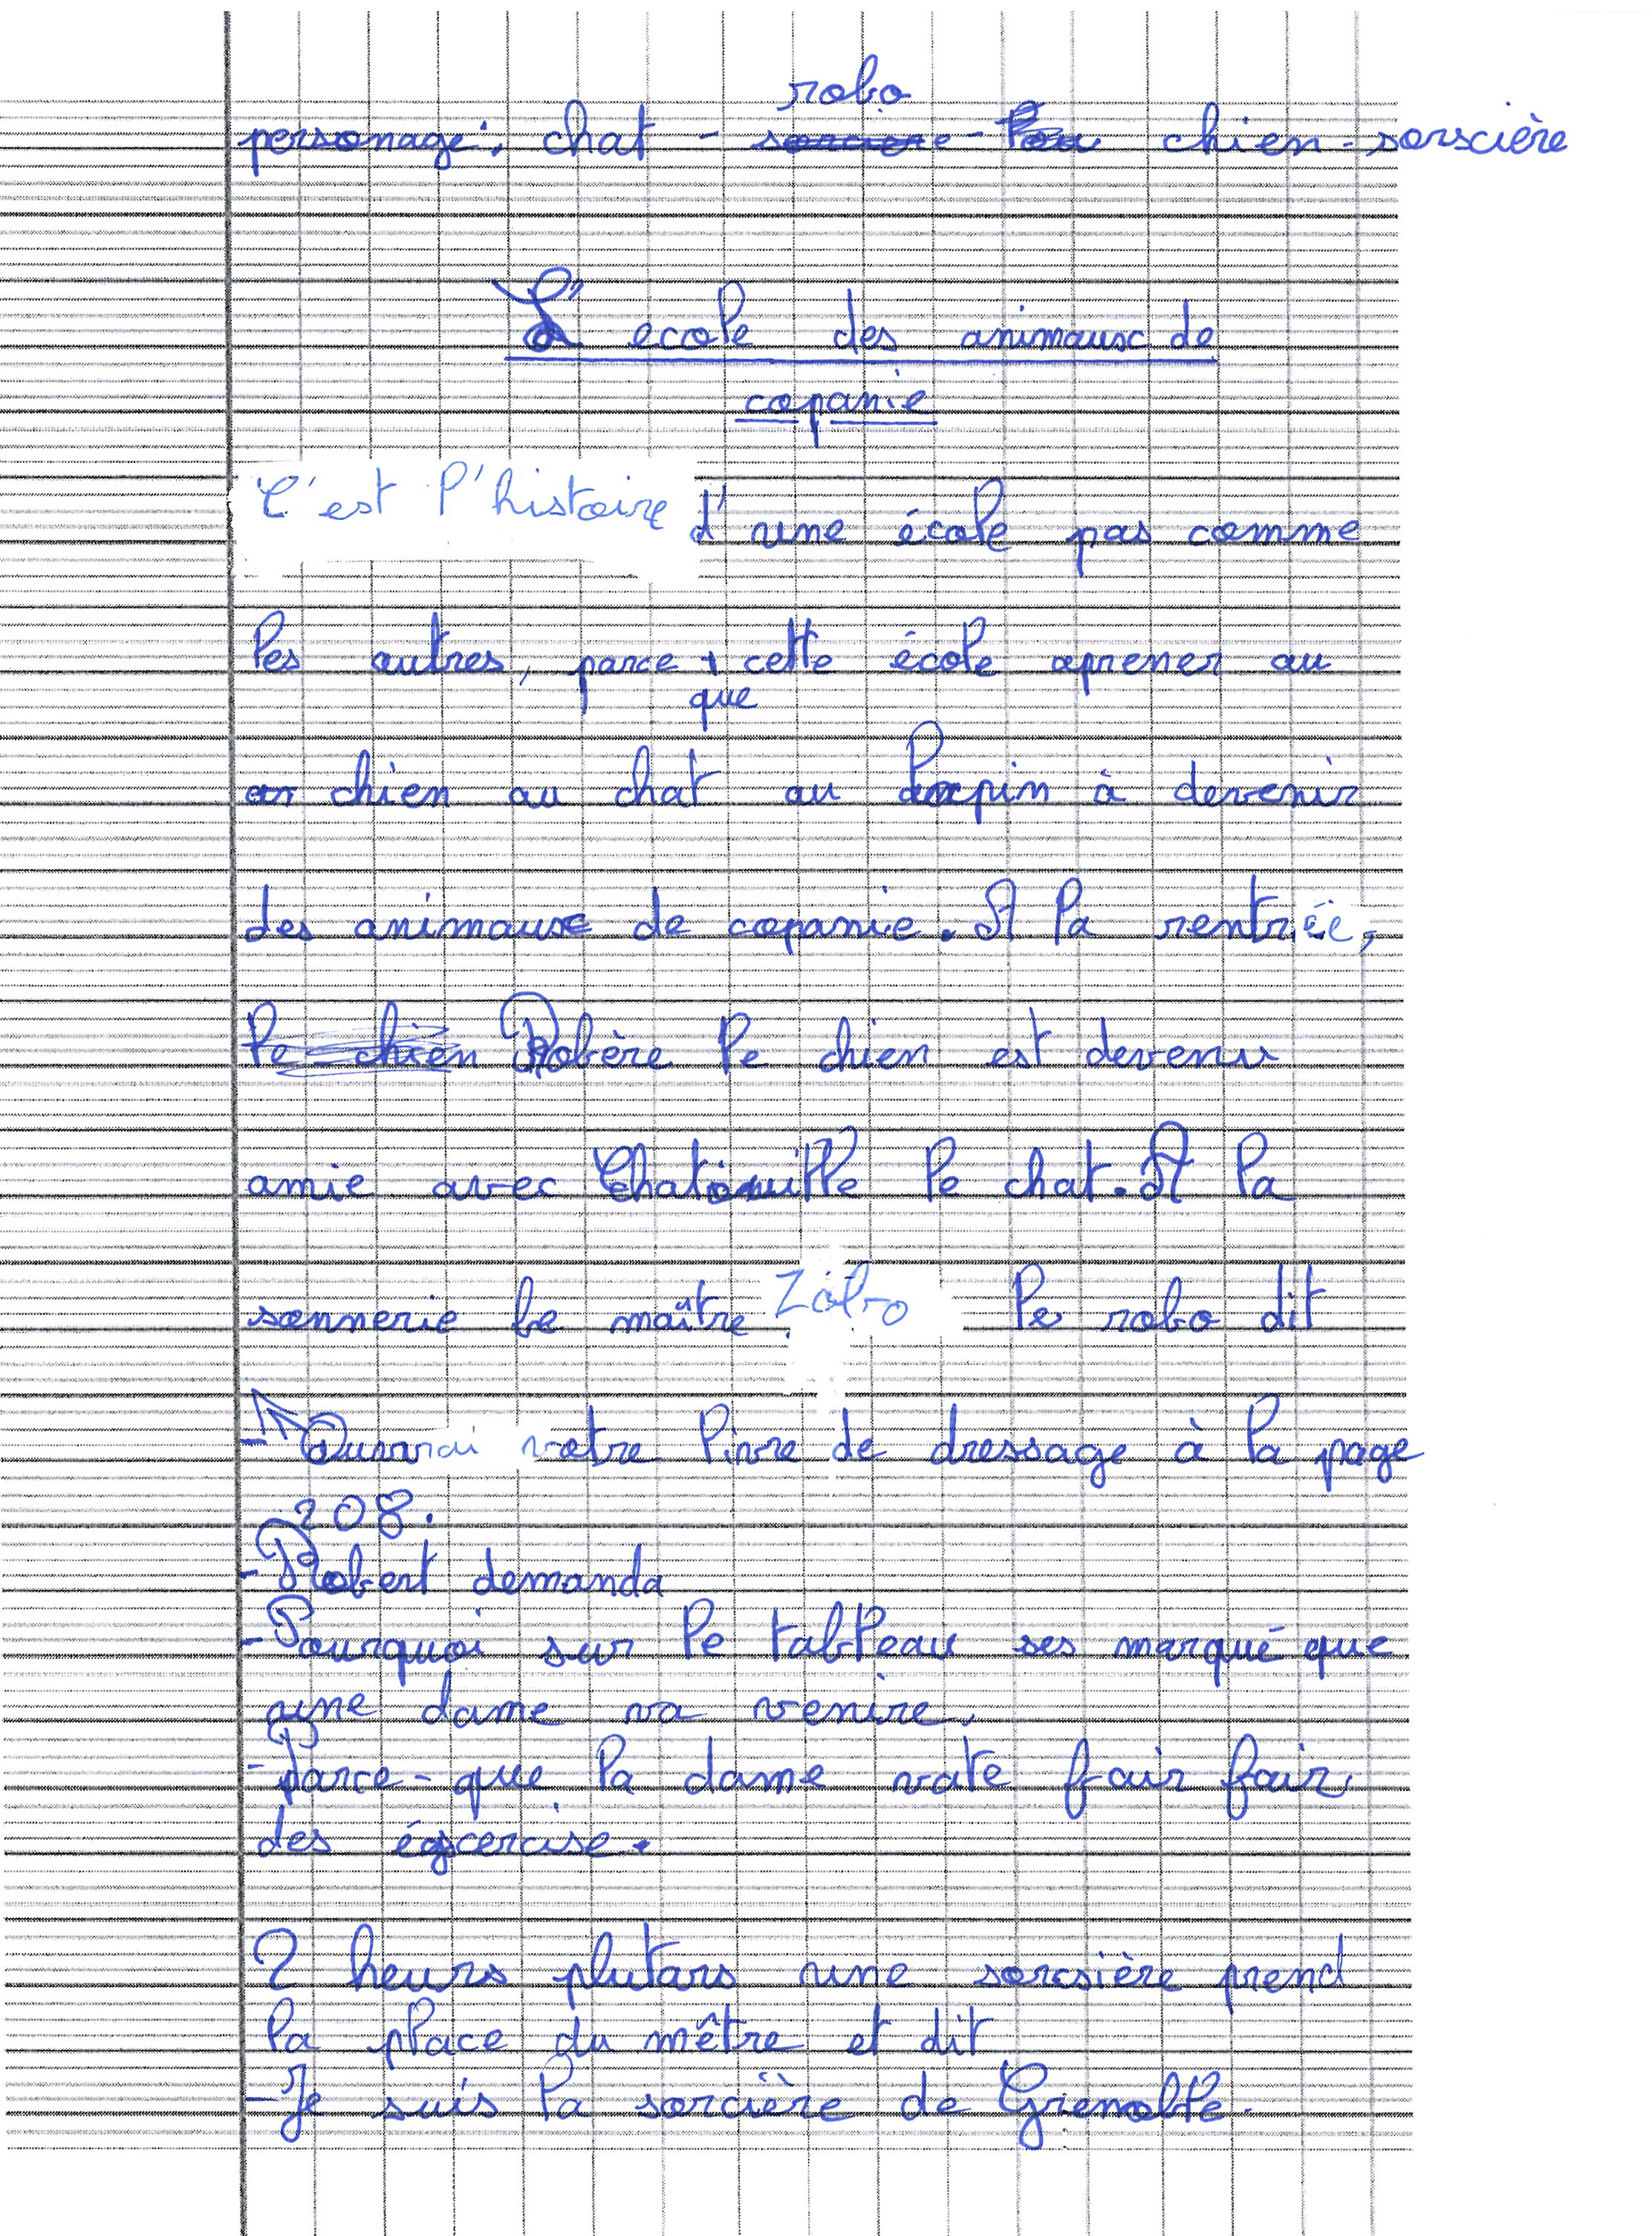 robo
personage : chat - sorciere - chien - sorscière
L' ecole des animaux de
copanie
C'est l'histoire d'une école pas comme
les autres, parce + cette école aprener au
que
chien au chat au lapin à devenir
des animaux de copanie. A la rentrée,
le chien Robère le chien est devenu
amie avec Chatouille le chat. A la
sonnerie le maître Zabro le robo dit
- Ouvrai votre livre de dressage à la page
208.
- Robert demanda
- Pourquoi sur le tableau ses marqué que
une dame va venire.
- Parce-que la dame vate fair fair
des égscercise.
2 heurs plutars une sorcsière prend
la place du mêtre et dit
- Je suis la sorcière de Grenoble.